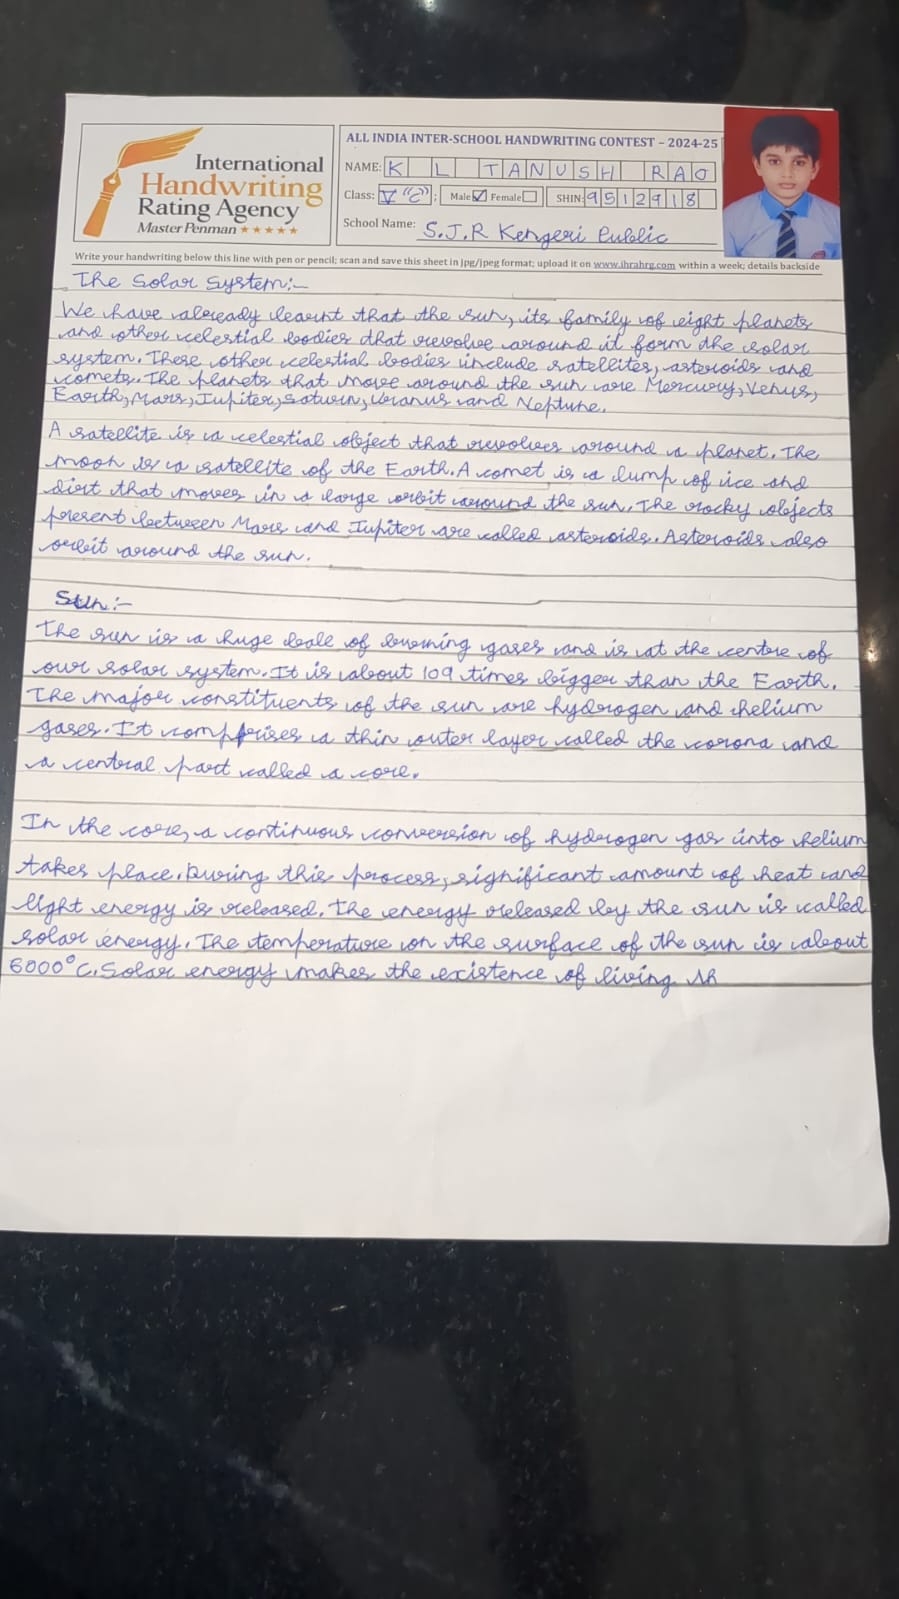 International
Handwriting
Rating Agency
Master Penman ★★★★★
ALL INDIA INTER-SCHOOL HANDWRITING CONTEST – 2024-25
NAME: K L TANUSH RAO
Class: V "C" : Male ☑ Female ☐ SHIN: 9512918
School Name: S.J.R Kengeri Public
Write your handwriting below this line with pen or pencil; scan and save this sheet in jpg/jpeg format; upload it on www.ihrahrg.com within a week; details backside
The Solar System:-
We have already learnt that the sun, its family of eight planets
and other celestial bodies that revolve around it form the solar
system. These other celestial bodies include satellites, asteroids and
comets. The planets that move around the sun are Mercury, Venus,
Earth, Mars, Jupiter, Saturn, Uranus and Neptune.
A satellite is a celestial object that revolves around a planet. The
moon is a satellite of the Earth. A comet is a lump of ice and
dirt that moves in a large orbit around the sun. The rocky objects
present between Mars and Jupiter are called asteroids. Asteroids also
orbit around the sun.
Sun:-
The sun is a huge ball of burning gases and is at the centre of
our solar system. It is about 109 times bigger than the Earth.
The major constituents of the sun are hydrogen and helium
gases. It comprises a thin outer layer called the corona and
a central part called a core.
In the core, a continuous conversion of hydrogen gas into helium
takes place. During this process, significant amount of heat and
light energy is released. The energy released by the sun is called
solar energy. The temperature on the surface of the sun is about
6000°C. Solar energy makes the existence of living th